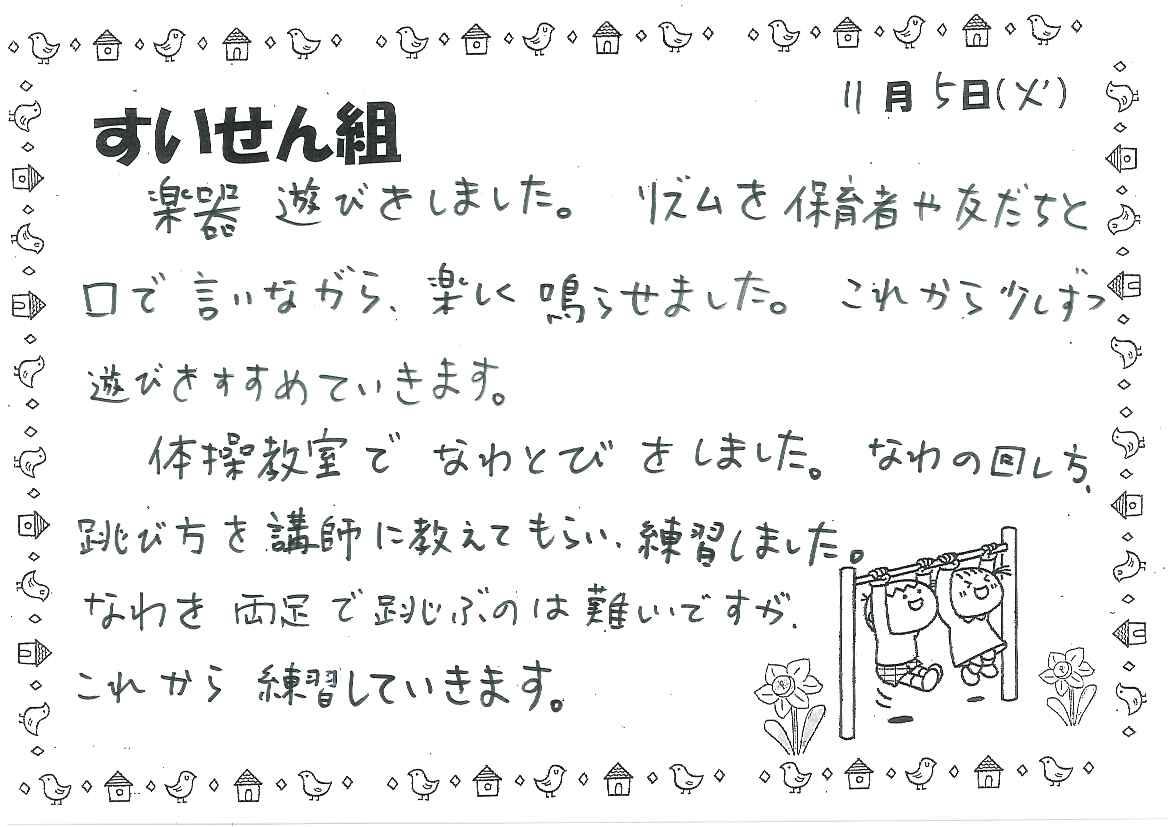 11月5日(火)
すいせん組
楽器遊びをしました。 リズムを保育者や友だちと
口で言いながら、楽しく鳴らせました。 これから少しずつ
遊びをすすめていきます。
体操教室でなわとびをしました。 なわの回し方、
跳び方を講師に教えてもらい、練習しました。
なわを両足で跳ぶのは難しいですが、
これから練習していきます。